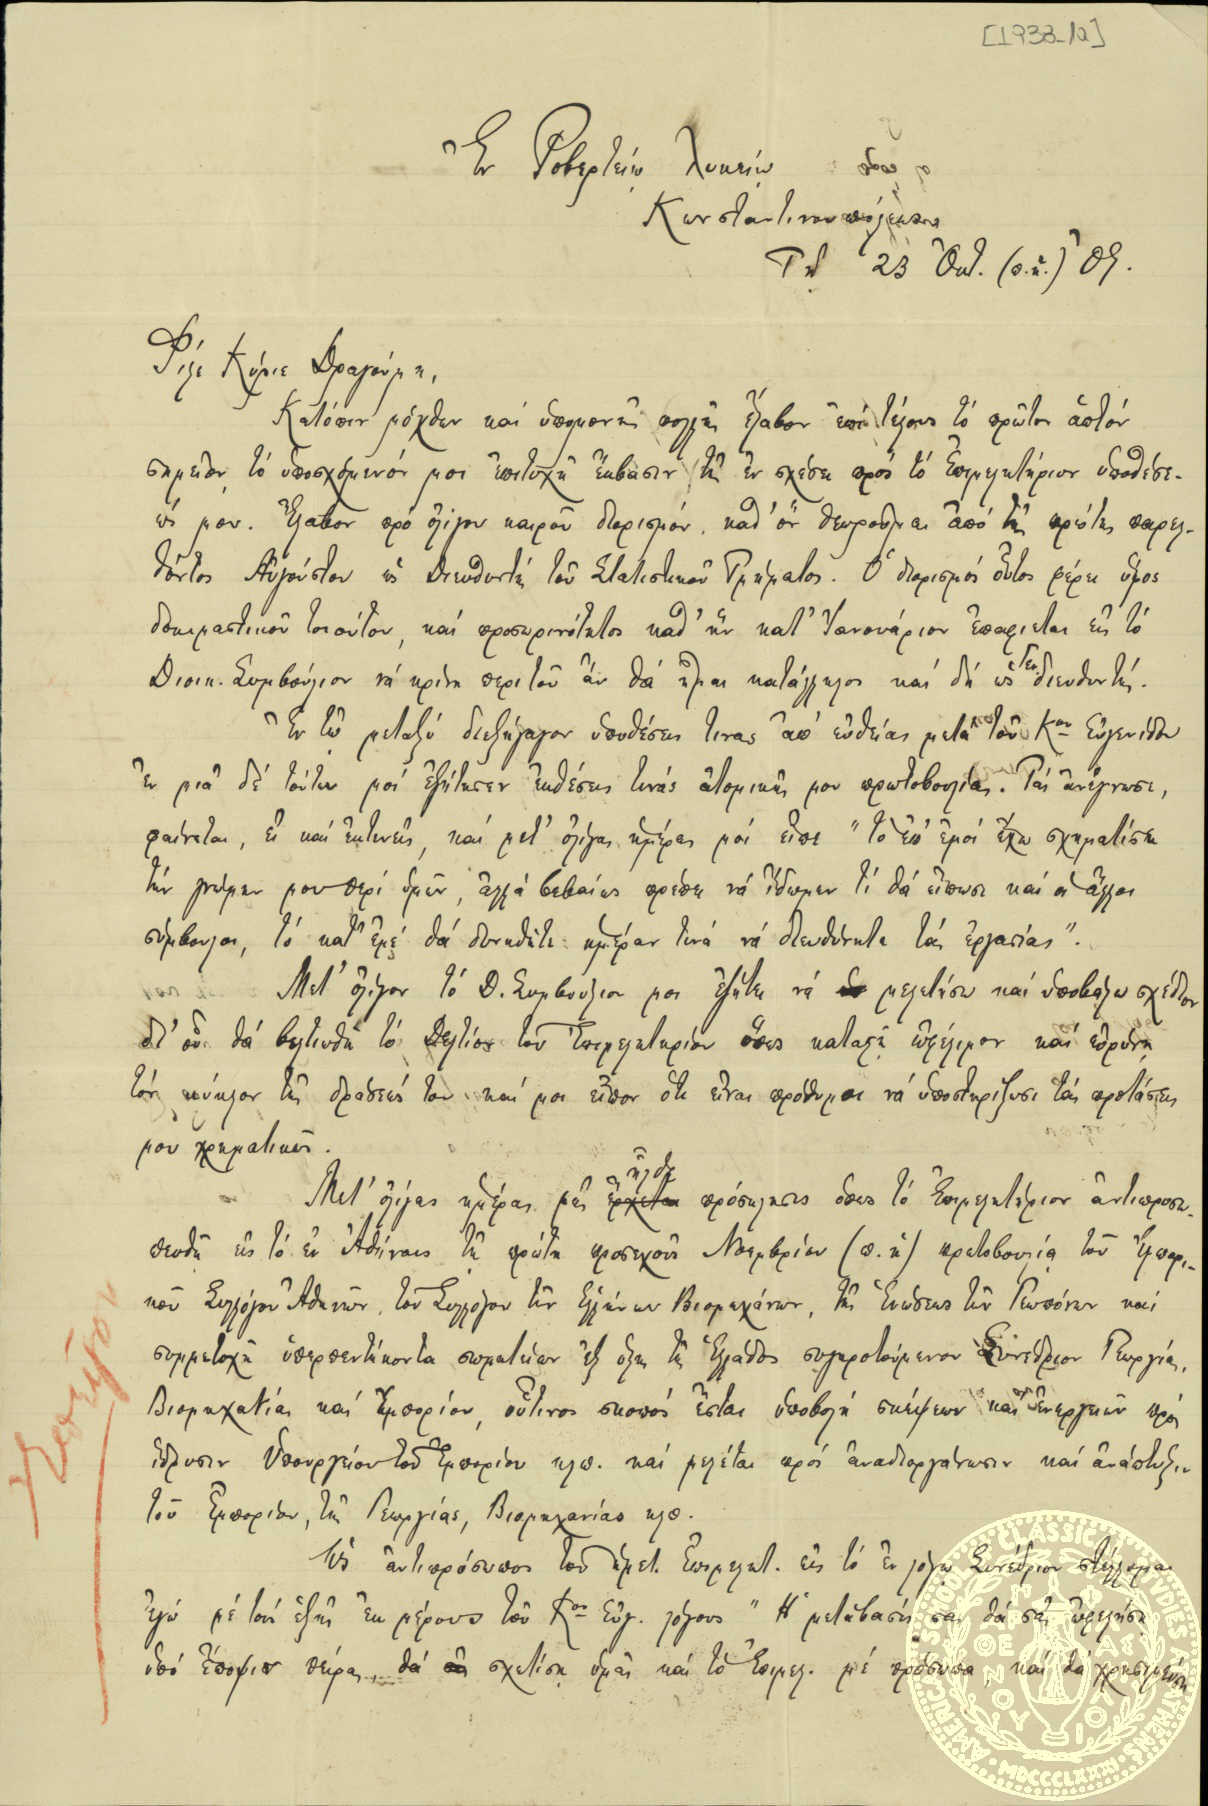 [1933-12]
Ἐν Ροβερτείῳ Λυκείῳ
Κωνσταντινουπόλεως
Τῇ 23 Ὀκτ. (π.ἡ.)
Φίλε Κύριε Δραγούμη,
Κατόπιν μόχθων καὶ ὑπομονῆς πολλῆς ἔλαβον ἐπὶ τέλους τὸ πρῶτον ἁπτόν
σημεῖον, τὸ ὑποσχόμενόν μοι ἐπιτυχῆ ἔκβασιν τῆς ἐν σχέσει πρὸς τὸ Ἐπιμελητήριον ὑποθέσε-
ώς μου. Ἔλαβον πρὸ ὀλίγου καιροῦ διορισμόν, καθ' ὃν θεωροῦμαι ἀπὸ τῆς πρώτης παρελ-
θόντος Αὐγούστου ὡς Διευθυντὴς τοῦ Στατιστικοῦ Τμήματος. Ὁ διορισμὸς οὗτος φέρει ὕφος
δοκιμαστικοῦ τοιούτου, καὶ προσωρινότητος καθ' ἣν κατ' Ἰανουάριον ἐπαφίεται εἰς τὸ
Διοικ. Συμβούλιον νὰ κρίνῃ περὶ τοῦ ἂν θὰ ἦμαι κατάλληλος καὶ δὴ ὡς Γεν. διευθυντής.
Ἐν τῷ μεταξὺ διεξήγαγον ὑποθέσεις τινὰς ἀπ' εὐθείας μετὰ τοῦ Κου Εὐγενίδου
ἐν μιᾷ δὲ τούτων μοὶ ἐζήτησεν ἐκθέσεις τινὰς ἀτομικῆς μου πρωτοβουλίας. Τὰς ἀνέγνωσε,
φαίνεται, εἰ καὶ ἐκτενεῖς, καὶ μετ' ὀλίγας ἡμέρας μοὶ εἶπε "τὸ ἐπ' ἐμοὶ ἔχω σχηματίσει
τὴν γνώμην μου περὶ ὑμῶν, ἀλλὰ βεβαίως πρέπει νὰ ἴδωμεν τί θὰ εἴπωσι καὶ οἱ ἄλλοι
σύμβουλοι, τὸ κατ' ἐμὲ θὰ δυνηθῆτε ἡμέραν τινὰ νὰ διευθύνητε τὰς ἐργασίας".
Μετ' ὀλίγον τὸ Δ. Συμβούλιον μοι ἐζήτει νὰ μελετήσω καὶ ὑποβάλω σχέδιον
δι' οὗ θὰ βελτιωθῇ τὸ Δελτίον τοῦ Ἐπιμελητηρίου ὅπως καταστῇ ὠφέλιμον καὶ εὐρύνῃ
τὸν κύκλον τῆς δράσεώς του καὶ μοι εἶπον ὅτι εἶναι πρόθυμοι νὰ ὑποστηρίξωσι τὰς προτάσεις
μου χρηματικῶς.
Μετ' ὀλίγας ἡμέρας μᾶς ἔρχεται ἦλθε πρόσκλησις ὅπως τὸ Ἐπιμελητήριον ἀντιπροσω-
πευθῇ εἰς τὸ ἐν Ἀθήναις τῇ πρώτῃ προσεχοῦς Νοεμβρίου (π.ἡ) πρωτοβουλίᾳ τοῦ Ἐμπορι-
κοῦ Συλλόγου Ἀθηνῶν, τοῦ Συλλόγου τῶν Ἑλλήνων Βιομηχάνων, τῆς Ἑνώσεως τῶν Γεωπόνων καὶ
συμμετοχῇ ὑπερπεντήκοντα σωματείων ἐξ ὅλης τῆς Ἑλλάδος συγκροτούμενον Συνέδριον Γεωργίας,
Βιομηχανίας καὶ Ἐμπορίου, οὗτινος σκοπὸς ἔσται ὑποβολὴ σκέψεων καὶ ἐνεργειῶν πρὸς
ἵδρυσιν Ὑπουργείου τοῦ Ἐμπορίου κλπ. καὶ μελέται πρὸς ἀναδιοργάνωσιν καὶ ἀνάπτυξιν
τοῦ Ἐμπορίου, τῆς Γεωργίας, Βιομηχανίας κλπ.
Ὡς ἀντιπρόσωπος τοῦ ἡμετ. Ἐπιμελητ. εἰς τὸ ἐν λόγῳ Συνέδριον στέλλομαι
ἐγὼ μὲ τοὺς ἑξῆς ἐκ μέρους τοῦ Κου Εὐγ. λόγους "Ἡ μετάβασίς σας θὰ σᾶς ὠφελήσῃ
ὑπὸ ἔποψιν πείρας, θὰ σχετίσῃ ὑμᾶς καὶ τὸ Ἐπιμελ. μὲ πρόσωπα, καὶ θὰ χρησιμεύσῃ
AMERICAN SCHOOL OF CLASSICAL STUDIES AT ATHENS
MDCCCLXXXI
ΠΑΡΘΕΝΟΥ ΦΙΛΑΣ